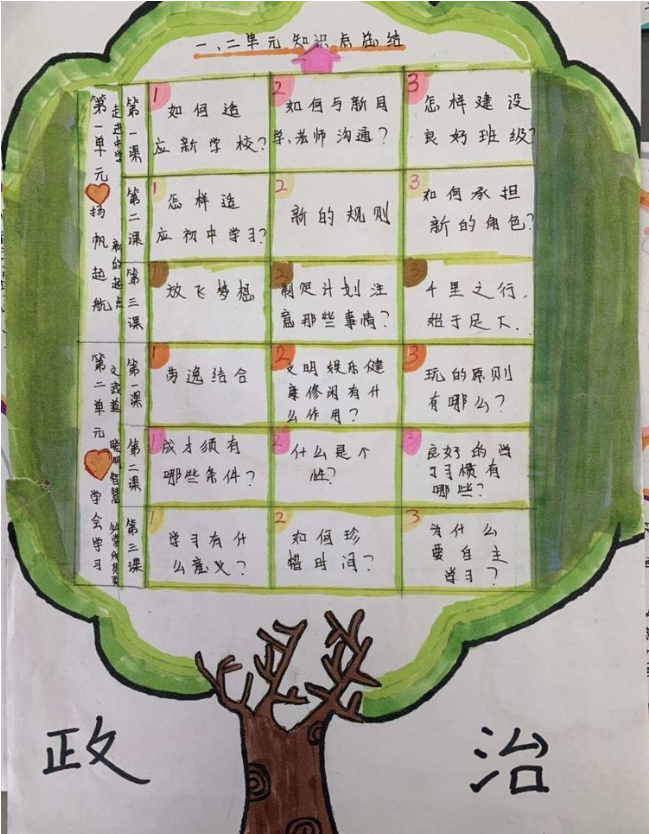 一、二单元知识点总结
第一单元 扬帆起航
走进中学
第一课
1
如何适
应新学校?
2
如何与新同
学、老师沟通?
3
怎样建设
良好班级?
新的起点
第二课
1
怎样适
应初中学习?
2
新的规则
3
如何承担
新的角色?
第三课
1
放飞梦想
2
制定计划注
意那些事情?
3
千里之行,
始于足下..
第二单元 学会学习
第一课
1
劳逸结合
2
文明娱乐健
康修闲有什
么作用?
3
玩的原则
有哪么?
聪明智慧
第二课
1
成才须有
哪些条件?
2
什么是个
性?
3
良好的学
习习惯有
哪些?
第三课
1
学习有什
么意义?
2
如何珍
惜时间?
3
为什么
要自主
学习?
政 治